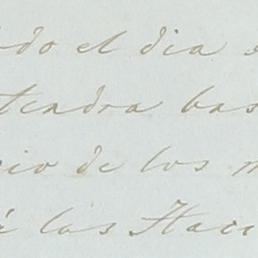 do el dia
tendra bas
io de los
las Haci